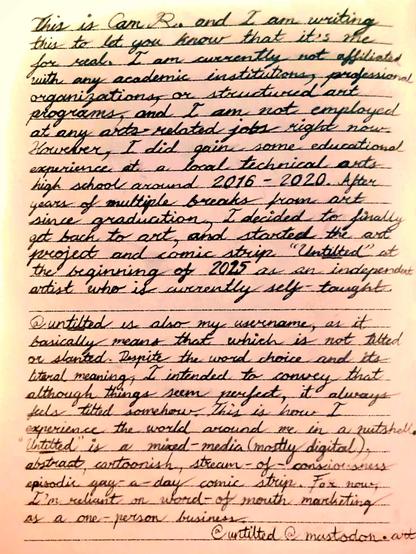 This is Can R. and I am writing
this to let you know that it's me
for real. I am currently not affiliated
with any academic institutions, professional
organizations, or structured art
programs, and I am not employed
at any arts-related jobs right now.
However, I did gain some educational
experience at a local technical arts
high school around 2016 - 2020. After
years of multiple breaks from art
since graduation, I decided to finally
get back to art, and started the art
project and comic strip "Untilted" at
the beginning of 2025 as an independent
artist who is currently self-taught.
@untilted is also my username, as it
basically means that which is not tilted
or slanted. Despite the word choice and its
literal meaning, I intended to convey that
although things seem perfect, it always
feels tilted somehow. This is how I
experience the world around me in a nutshell.
"Untilted" is a mixed-media (mostly digital),
abstract, cartoonish, stream-of-consciousness
episodic gag-a-day comic strip. For now,
I'm reliant on word-of mouth marketing
as a one-person business.
@untilted @ mastodon.art